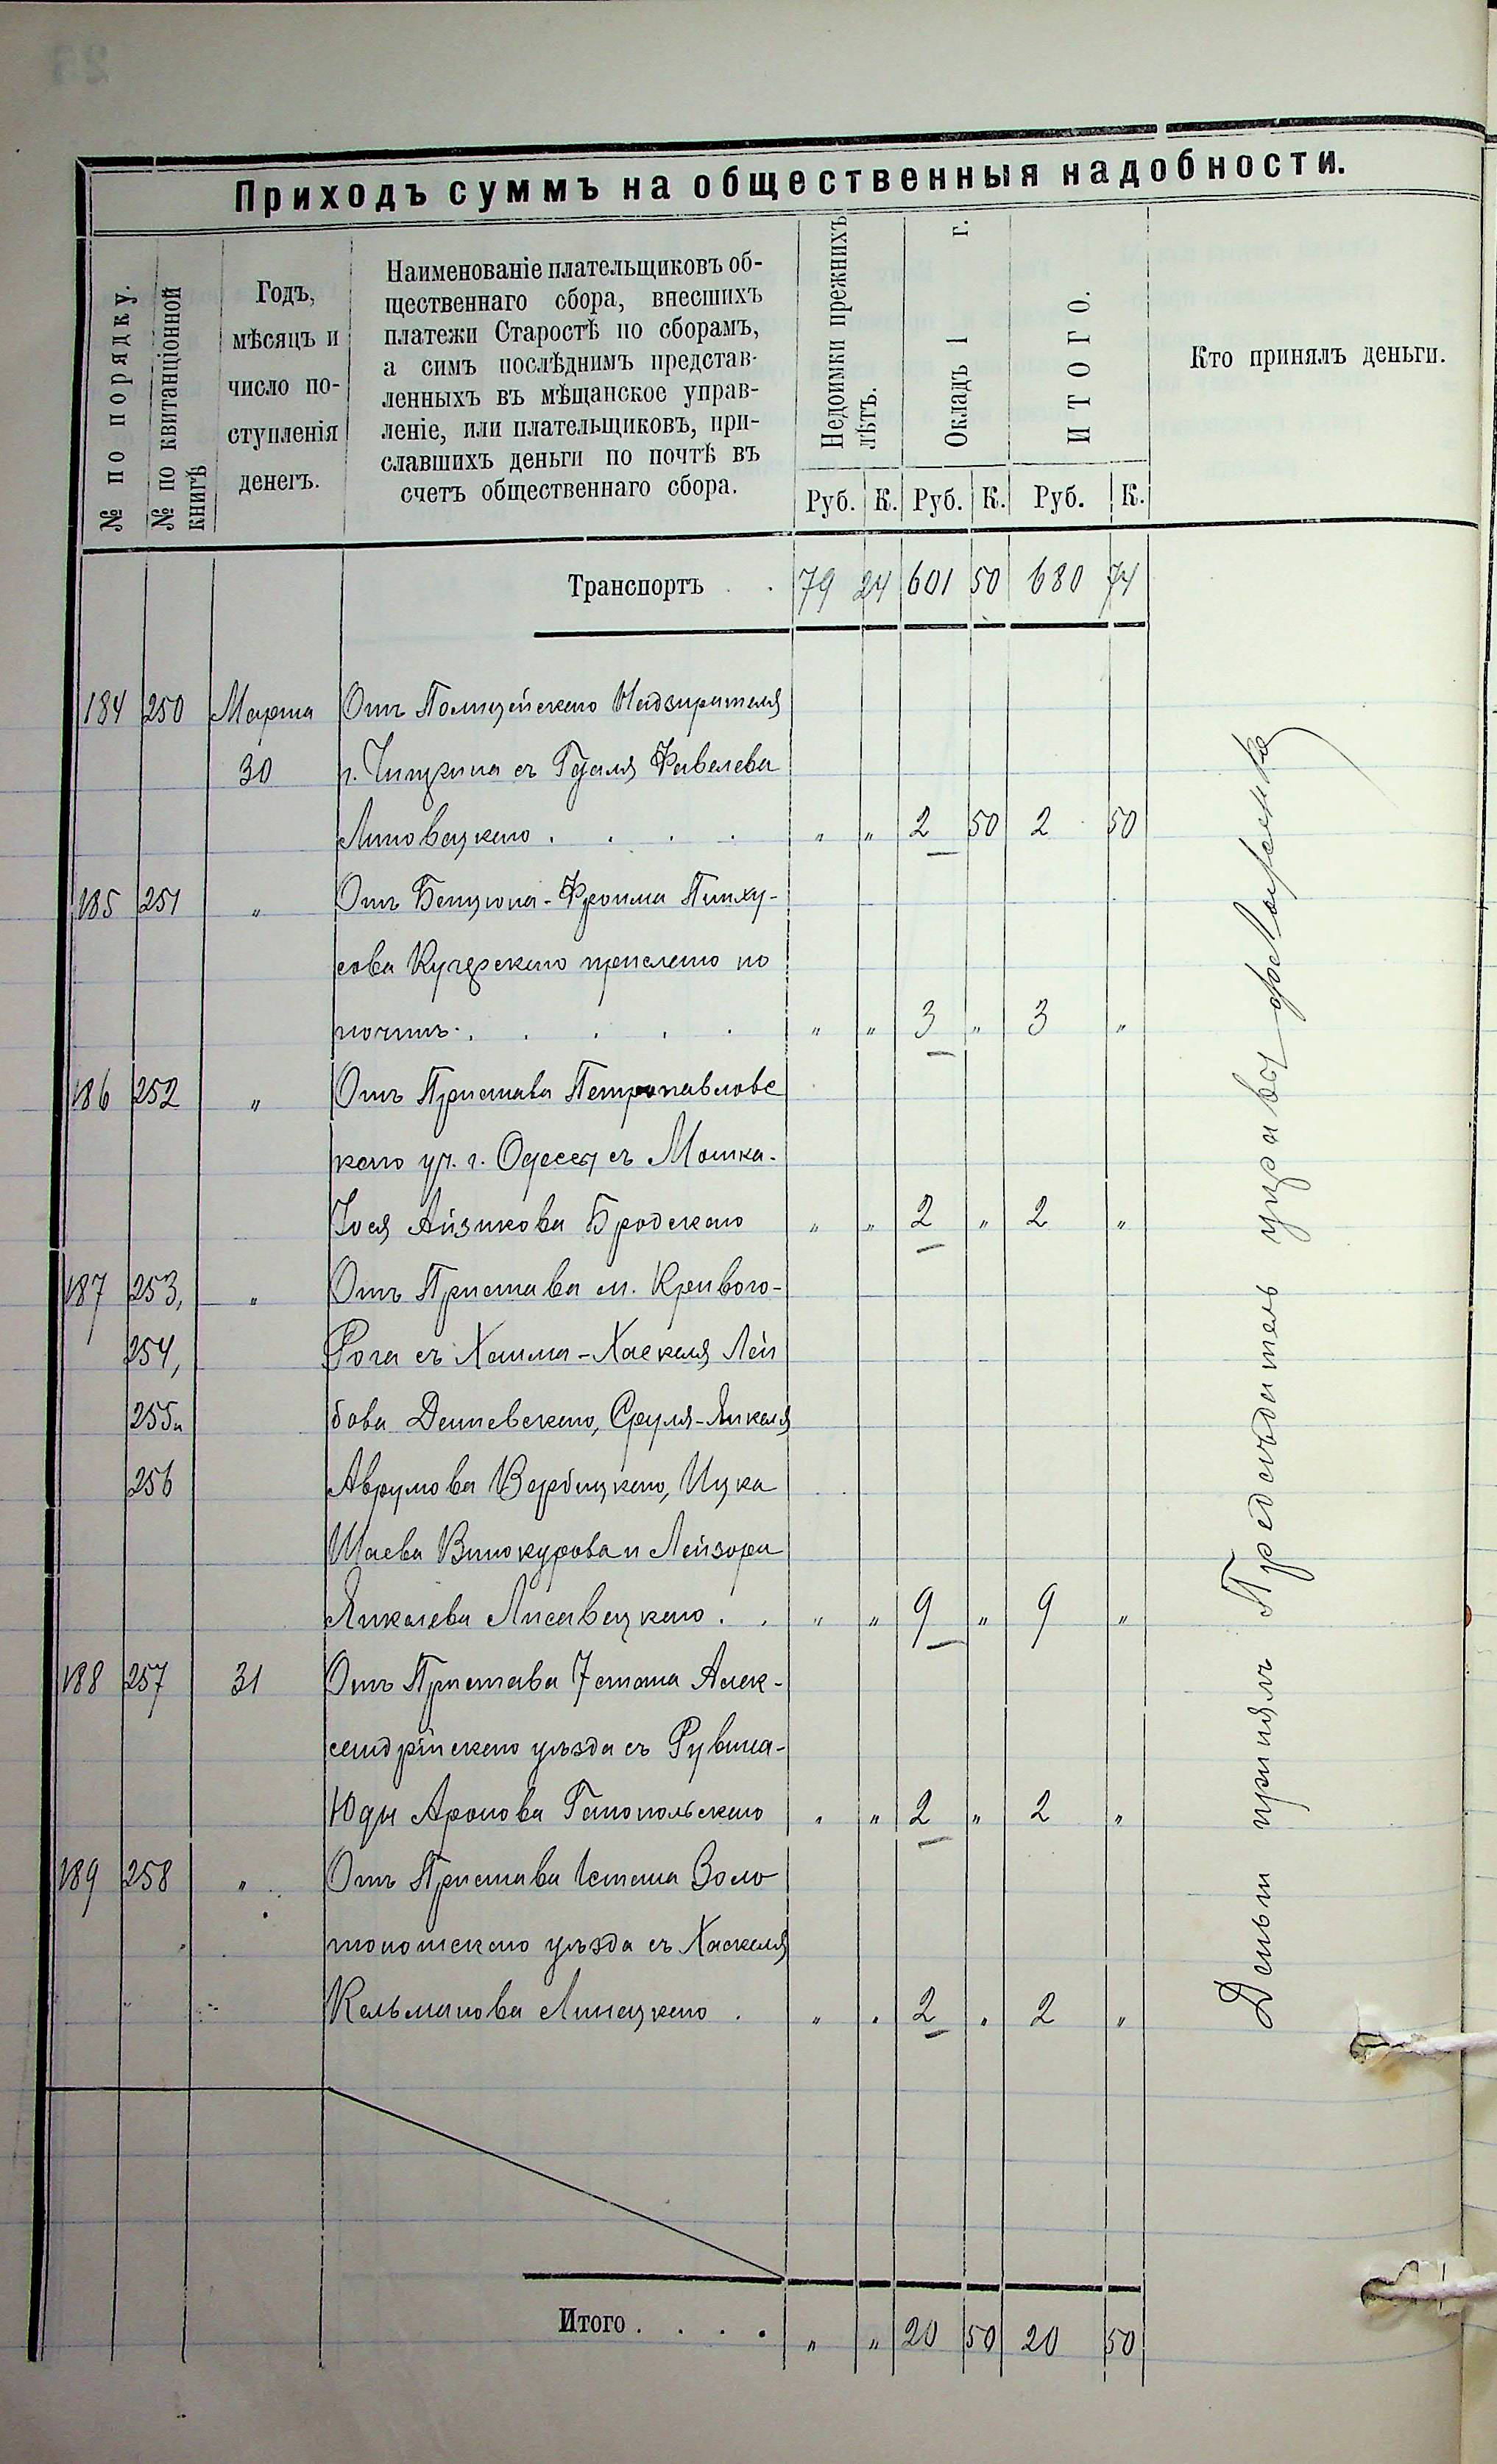 Приходъ суммъ на общественныя надобности.
№ по порядку.
№ по квитанціонной
книгѣ
Годъ,
мѣсяцъ и
число по-
ступленія
денегъ.
Наименованіе плательщиковъ об-
щественнаго сбора, внесшихъ
платежи Старостѣ по сборамъ,
а симъ послѣднимъ представ-
ленныхъ въ мѣщанское управ-
леніе, или плательщиковъ, при-
славшихъ деньги по почтѣ въ
счетъ общественнаго сбора.
Недоимки прежнихъ
лѣтъ.
Окладъ 1 г.
ИТОГО.
Кто принялъ деньги.
Руб. К. Руб. К. Руб. К.
Транспортъ . . 79 24 601 50 680 74
184 250 Марта Отъ Полицейскаго Надзирателя
30 г. Чигирина съ Гдаля Фавелева
Липовецкаго . . . . " " 2 50 2 50
185 251 " Отъ Бенциона-Фроима Пинху-
сова Кучерскаго прислано по
почтѣ . . . . . " " 3 " 3 "
186 252 " Отъ Пристава Петропавловс
каго уч. г. Одессы съ Мошка-
Іося Айзикова Бродскаго " " 2 " 2 "
187 253, " Отъ Пристава м. Кривого-
254, Рога съ Хаима-Хаскеля Лей
255 и бова Дашевскаго, Сруля-Янкеля
256 Аврумова Вербицкаго, Ицка
Шаева Винокурова и Лейзора
Янкелева Лисавецкаго . . " " 9 " 9 "
188 257 31 Отъ Пристава 7 стана Алек-
сандрійскаго уѣзда съ Рувина-
Юды Аронова Гапопольскаго " " 2 " 2 "
189 258 " Отъ Пристава 1 стана Золо
тоношскаго уѣзда съ Хаскеля
Кельманова Линецкаго . " " 2 " 2 "
Итого . . . . " " 20 50 20 50
Деньги принялъ Предсѣдатель управы